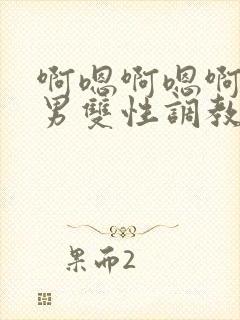 啊嗯啊嗯啊
男雙性調教
果而2